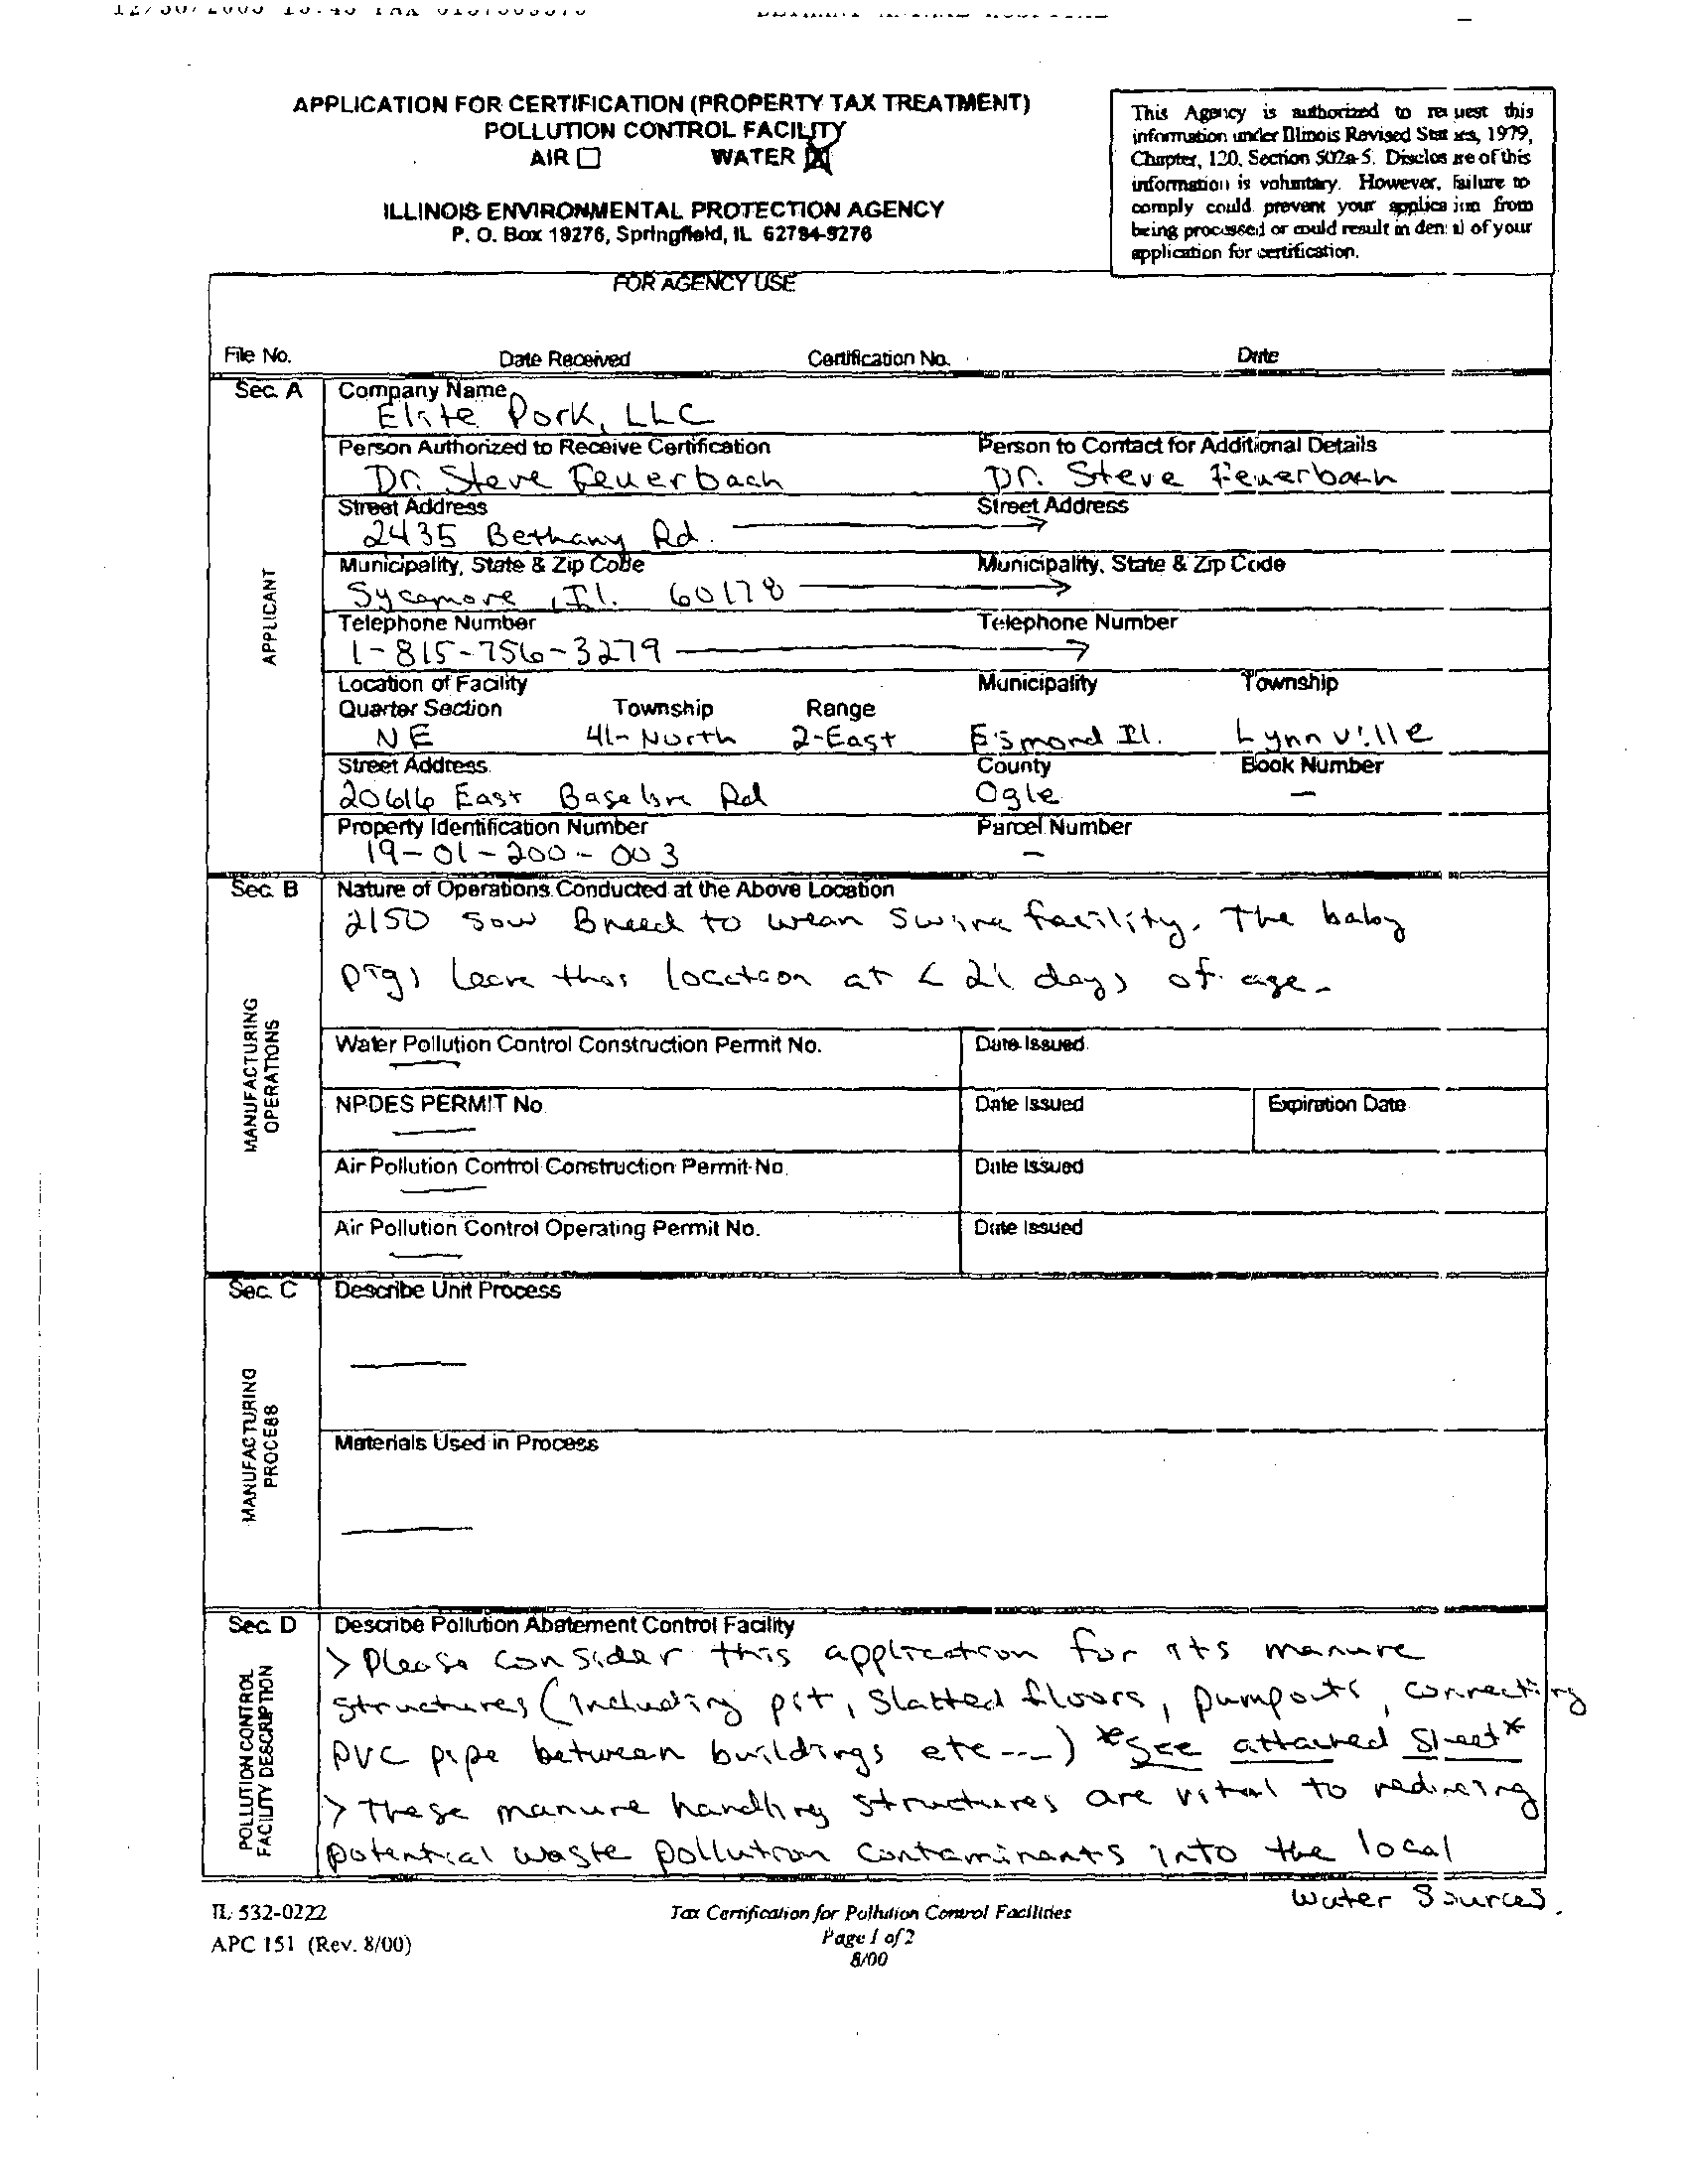 APPLICATION FOR CERTIFICATION (PROPERTY TAX TREATMENT)
POLLUTION CONTROL FACILITY
AIR WATER
ILLINOIS ENVIRONMENTAL PROTECTION AGENCY
P. O. Box 19276, Springfield, IL 62794-9276
This Agency is authorized to re uest this
information under Illinois Revised Stat es, 1979,
Chapter, 120, Section 502a-5. Disclos re of this
information is voluntary. However, failure to
comply could prevent your applica ion from
being processed or could result in den al of your
application for certification.
FOR AGENCY USE
File No. Date Received Certification No. Date
Sec. A
APPLICANT
Company Name
Elite Pork, LLC
Person Authorized to Receive Certification Person to Contact for Additional Details
Dr. Steve Feuerbach Dr. Steve Feuerbach
Street Address Street Address
2435 Bethany Rd.
Municipality, State & Zip Code Municipality, State & Zip Code
Sycamore, Il. 60178
Telephone Number Telephone Number
1-815-756-3279
Location of Facility Municipality Township
Quarter Section Township Range
NE 41-North 2-East Esmond Il. Lynnville
Street Address County Book Number
20616 East Baseline Rd Ogle –
Property Identification Number Parcel Number
19-01-200-003 –
Sec. B
MANUFACTURING
OPERATIONS
Nature of Operations Conducted at the Above Location
2150 Sow Breed to wean Swine facility. The baby
pigs leave this location at < 21 days of age.
Water Pollution Control Construction Permit No. Date Issued
NPDES PERMIT No. Date Issued Expiration Date
Air Pollution Control Construction Permit No. Date Issued
Air Pollution Control Operating Permit No. Date Issued
Sec. C
MANUFACTURING
PROCESS
Describe Unit Process
Materials Used in Process
Sec. D
POLLUTION CONTROL
FACILITY DESCRIPTION
Describe Pollution Abatement Control Facility
> Please consider this application for its manure
structures (including pit, slatted floors, pumpouts, connecting
PVC pipe between buildings etc---) *See attached Sheet*
> These manure handling structures are vital to reducing
potential waste pollution contaminants into the local
water Sources.
IL 532-0222
APC 151 (Rev. 8/00)
Tax Certification for Pollution Control Facilities
Page 1 of 2
8/00